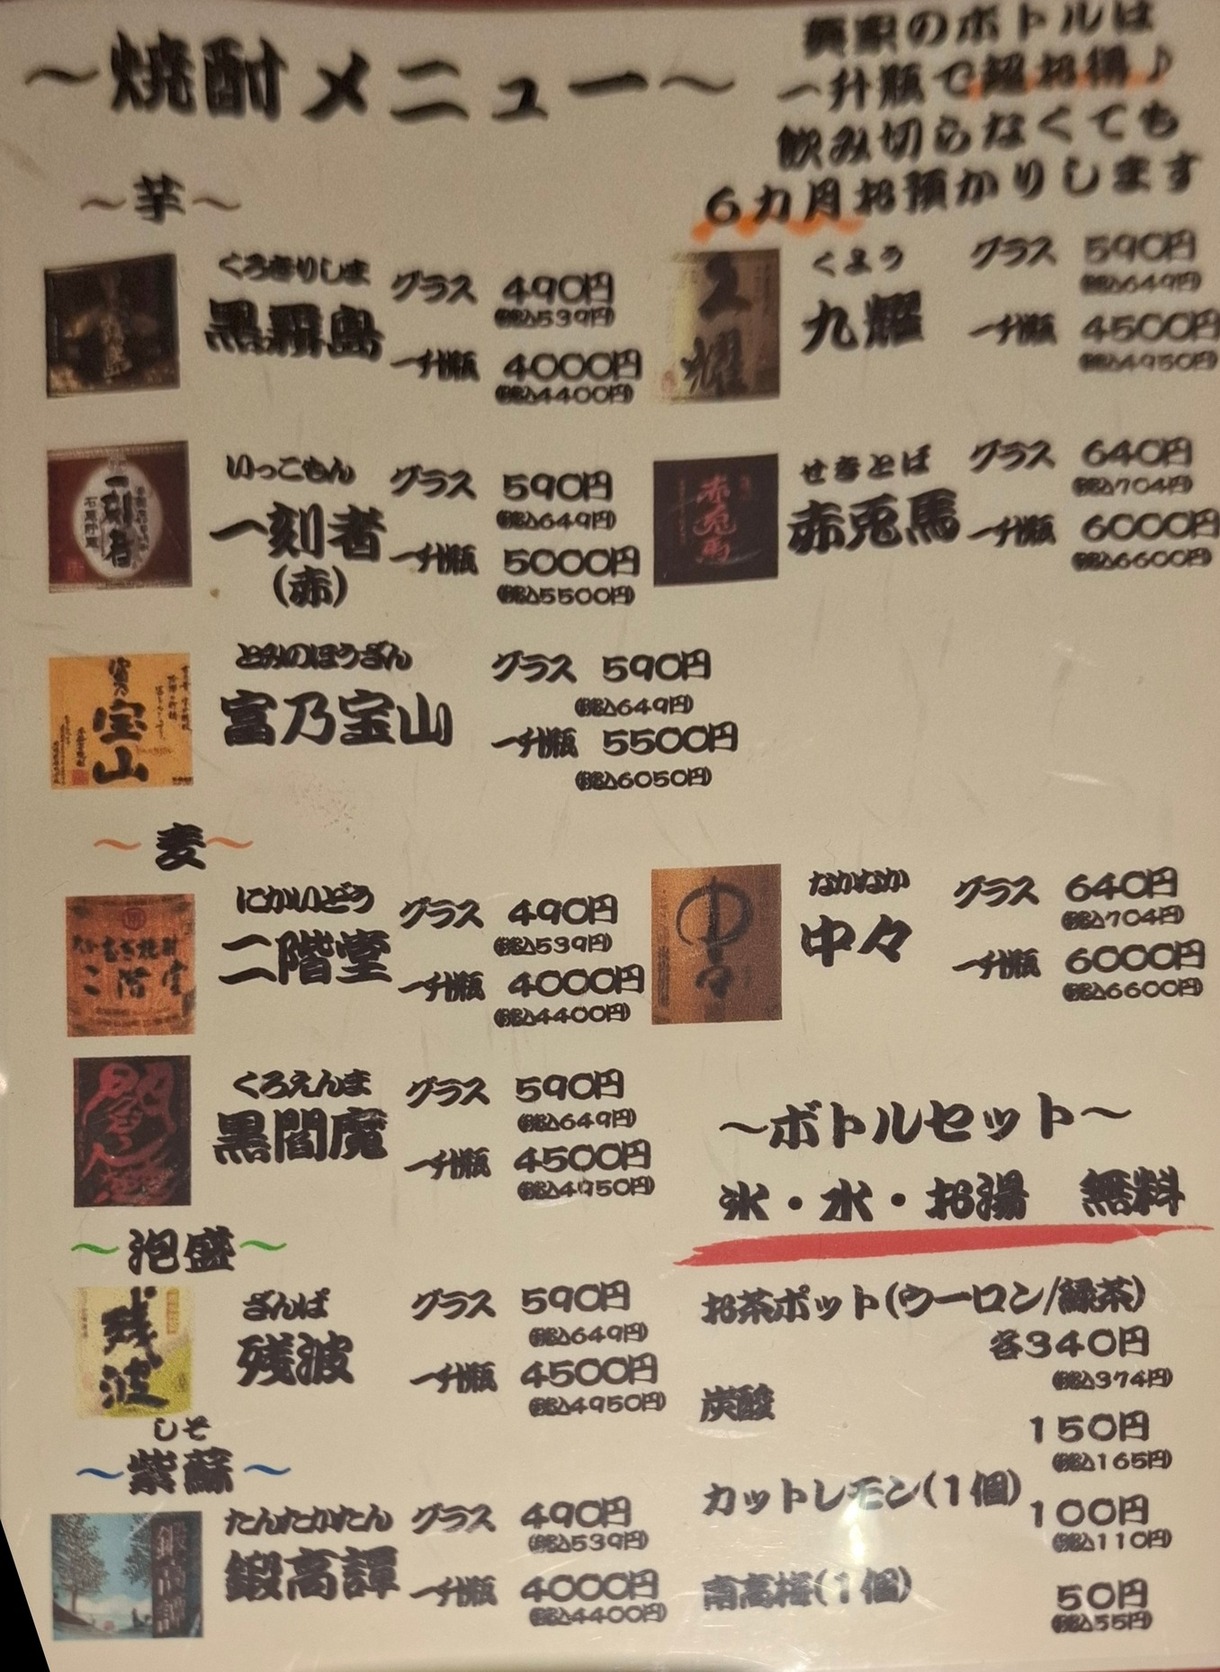 ～焼酎メニュー～
興家のボトルは
一升瓶で超お得♪
飲み切らなくても
6カ月お預かりします
～芋～
くろきりしま
黒霧島
グラス 490円
(税込539円)
一升瓶 4000円
(税込4400円)
くよう
九耀
グラス 590円
(税込649円)
一升瓶 4500円
(税込4950円)
いっこもん
一刻者
(赤)
グラス 590円
(税込649円)
一升瓶 5000円
(税込5500円)
せきとば
赤兎馬
グラス 640円
(税込704円)
一升瓶 6000円
(税込6600円)
とみのほうざん
富乃宝山
グラス 590円
(税込649円)
一升瓶 5500円
(税込6050円)
～麦～
にかいどう
二階堂
グラス 490円
(税込539円)
一升瓶 4000円
(税込4400円)
なかなか
中々
グラス 640円
(税込704円)
一升瓶 6000円
(税込6600円)
くろえんま
黒閻魔
グラス 590円
(税込649円)
一升瓶 4500円
(税込4950円)
～泡盛～
残波
ざんぱ
残波
グラス 590円
(税込649円)
一升瓶 4500円
(税込4950円)
しそ
～紫蘇～
鍛高譚
たんたかたん
鍛高譚
グラス 490円
(税込539円)
一升瓶 4000円
(税込4400円)
～ボトルセット～
氷・水・お湯 無料
お茶ポット(ウーロン/緑茶)
各340円
(税込374円)
炭酸
150円
(税込165円)
カットレモン(1個)
100円
(税込110円)
南高梅(1個)
50円
(税込55円)